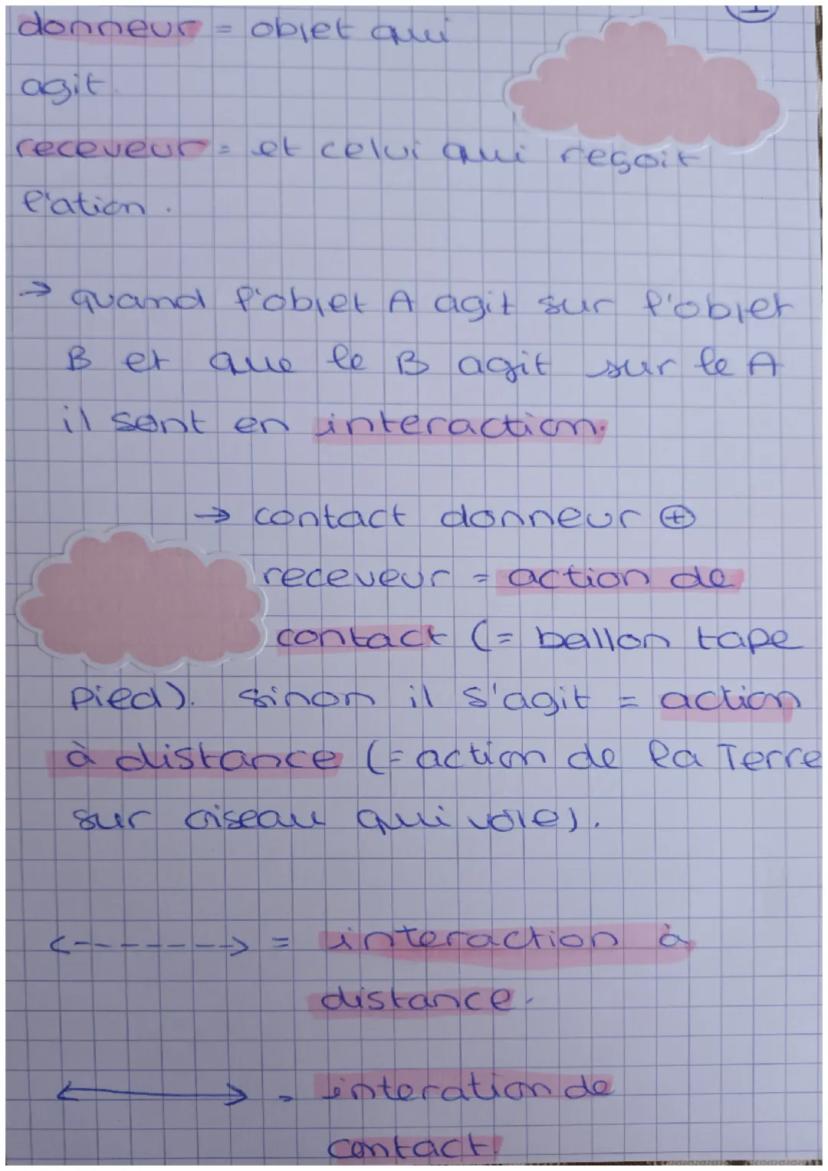 donneur = objet qui
agit.
receveur = et celui qui reçoit
l'ation.
→ quand l'objet A agit sur l'objet
B et que le B agit sur le A
il sont en interaction.
→ contact donneur ⊕
receveur = action de
contact (= ballon tape
pied). sinon il s'agit = action
à distance (= action de la Terre
sur oiseau qui vole).
<------> = interaction à
distance.
<——> = interation de
contact.